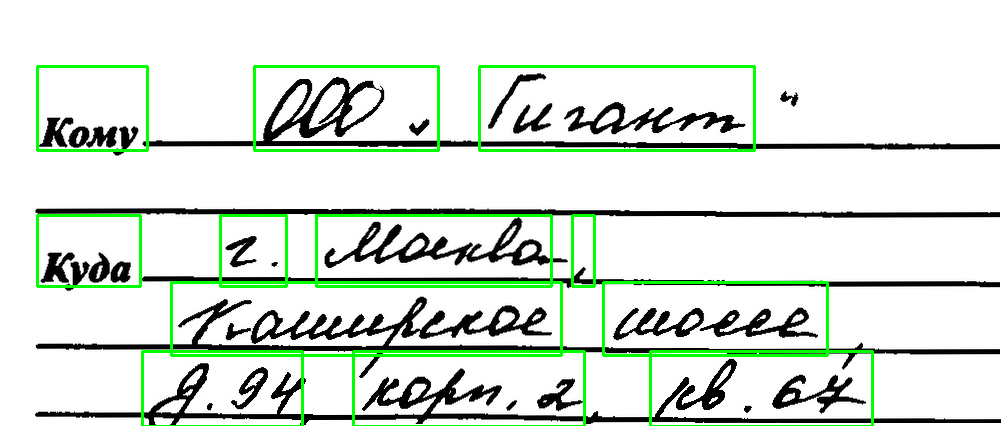 Кому ООО „Гигант“
Куда г. Москва,
Каширское шоссе
д. 94, корп. 2, кв. 67